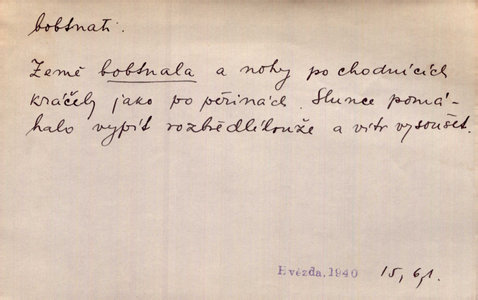 bobtnati.
Země bobtnala a nohy po chodnících
kráčely jako po peřinách. Slunce pomá-
halo vypít rozbředlé louže a vítr vysoušet.
Hvězda, 1940 15, 6, 1.